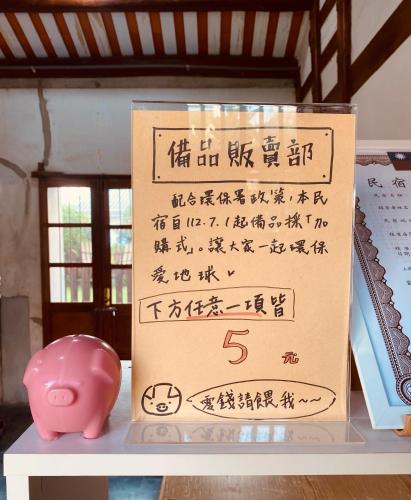 備品販賣部
配合環保署政策，本民
宿自112.7.1起備品採「加
購式」。讓大家一起環保
愛地球
下方任意一項皆
5元
零錢請餵我~~
民宿